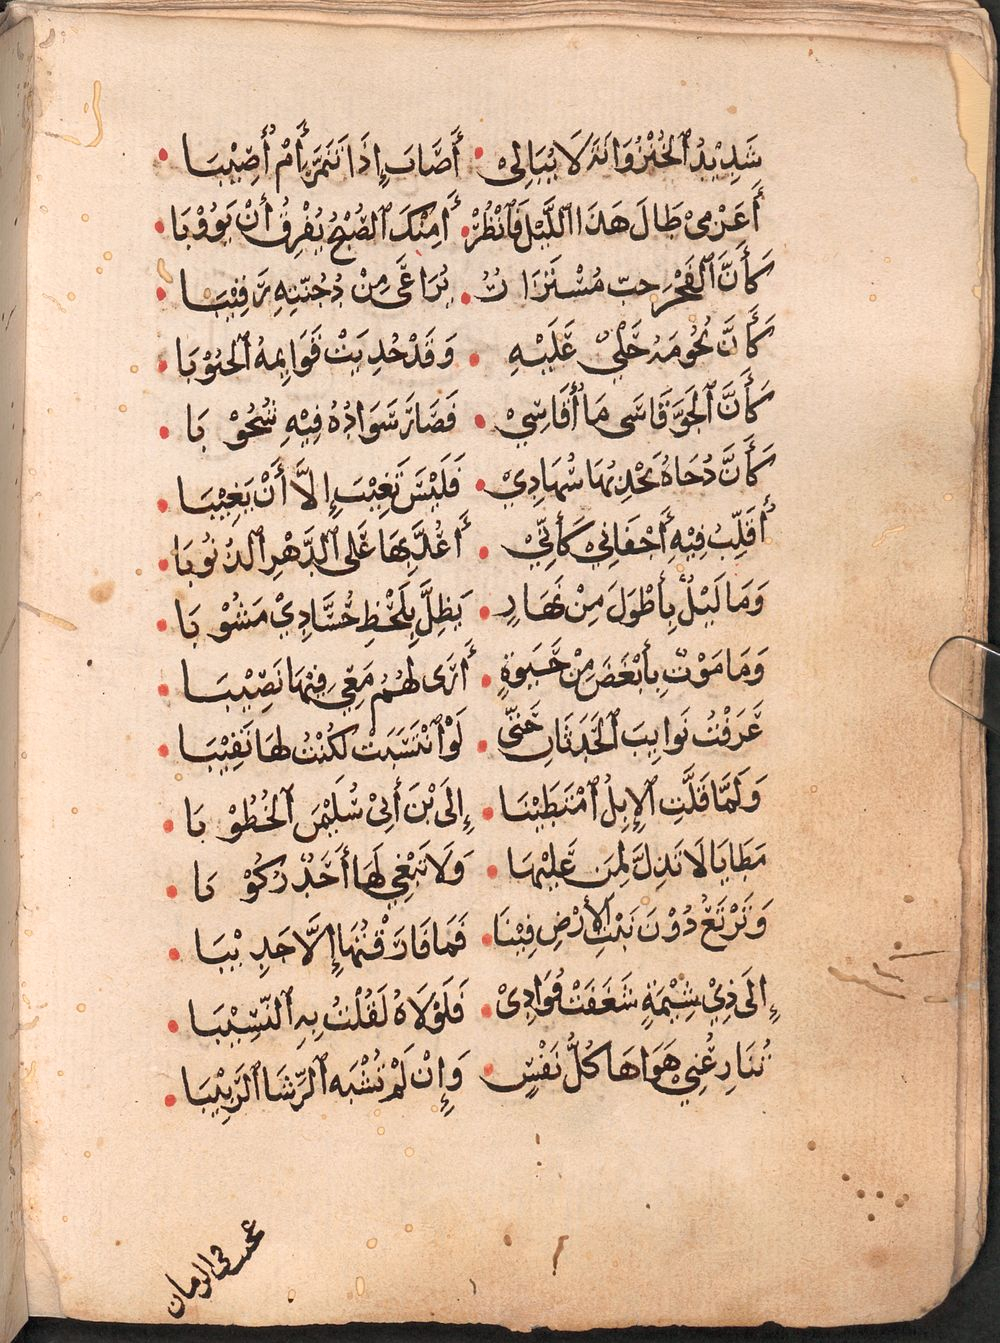 شَدِيْدُ الخُنْزُوَانَةِ لَا يُبَالِيْ • أَصَابَ إِذَا تَنَمَّرَ أَمْ أُصِيْبَا •
أَعَزْمِيْ طَالَ هَذَا اللَّيْلُ فَانْظُرْ • أَمِنْكَ الصُّبْحُ يَفْرَقُ أَنْ يَؤُوْبَا •
كَأَنَّ الفَجْرَ حِبّ مُسْتَزَارٌ • يُرَاعَى مِنْ دُجُنَّتِهِ رَقِيْبَا •
كَأَنَّ نُجُومَهُ حَلْيٌ عَلَيْهِ • وَقَدْ حُذِيَتْ قَوَايِمُهُ الجُبُوْبَا •
كَأَنَّ الجَوَّ قَاسَى مَا أُقَاسِيْ • فَصَارَ سَوَادُهُ فِيْهِ شُحُوْبَا •
كَأَنَّ دُجَاهُ يَجْذِبُهَا سُهَادِيْ • فَلَيْسَ تَغِيْبَ إِلَّا أَنْ يَغِيْبَا •
أُقَلِّبُ فِيْهِ أَجْفَانِيْ كَأَنِّيْ • أَعُدُّ بِهَا عَلَى الدَّهْرِ الذُنُوبَا •
وَمَا لَيْلٌ بِأَطْوَلَ مِنْ نَهَارٍ • يَظِلُّ بِلَحْظِ حُسَّادِيْ مَشُوْبَا •
وَمَا مَوْتٌ بِأَبْغَضَ مِنْ حَيَوةٍ • أَرَى لَهُمُ مَعِيْ فِيْهَا نَصِيْبَا •
عَرَفْتُ نَوَايِبَ الحَدَثَانِ حَتَّى • لَوْ انْتَسَبَتْ لَكُنْتُ لَهَا نَقِيْبَا •
وَلَمَّا قَلَّتِ الإِبِلُ امْتَطَيْنَا • إِلَى بْنِ أَبِيْ سُلَيْمَنَ الخُطُوْبَا •
مَطَايَا لَا تَذِلُّ لِمَن عَلَيْهَا • وَلَا يَبْغِي لَهَا أَحَدٌ رُكُوْبَا •
وَتَرْتَعُ دُوْنَ نَبْتِ الأَرْضِ فِيْنَا • فَمَا فَارَقْتُهَا إِلَّا جَدِيْبَا •
إِلَى ذِيْ شِيْمَةٍ شَغَفَتْ فُوَادِيْ • فَلَوْلَاهُ لَقُلْتُ بِهِ النَّسِيْبَا •
تُنَازِعُنِيْ هَوَاهَا كُلُّ نَفْسٍ • وَإِنْ لَمْ تُشْبِهِ الرَّشَا الرَّبِيْبَا •
عجب فى الزمان